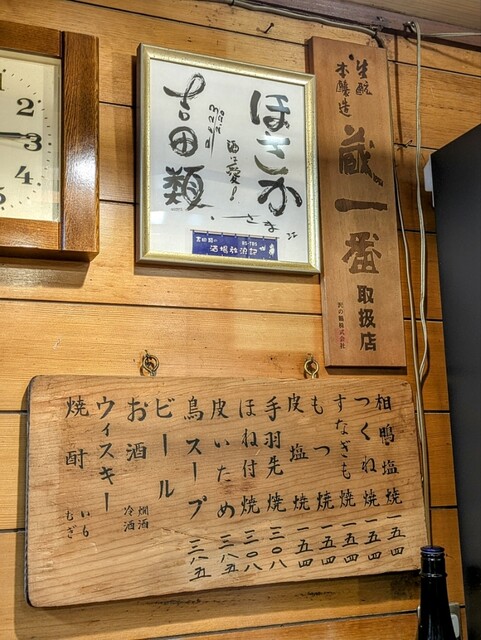 1
2
3
生酛
本醸造
蔵一番
取扱店
沢の鶴株式会社
ほさか
さま
吉田類
吉田類の
BS-TBS
酒場放浪記
相鴨塩焼 一五四
つくね焼 一五四
すなぎも焼 一五四
もつ焼 一五四
皮塩焼 一五四
手羽先焼 三〇八
ほね付焼 三〇八
皮いため 三八五
鳥スープ 三八五
ビール
お酒 燗酒 冷酒
ウィスキー
焼酎 いも むぎ